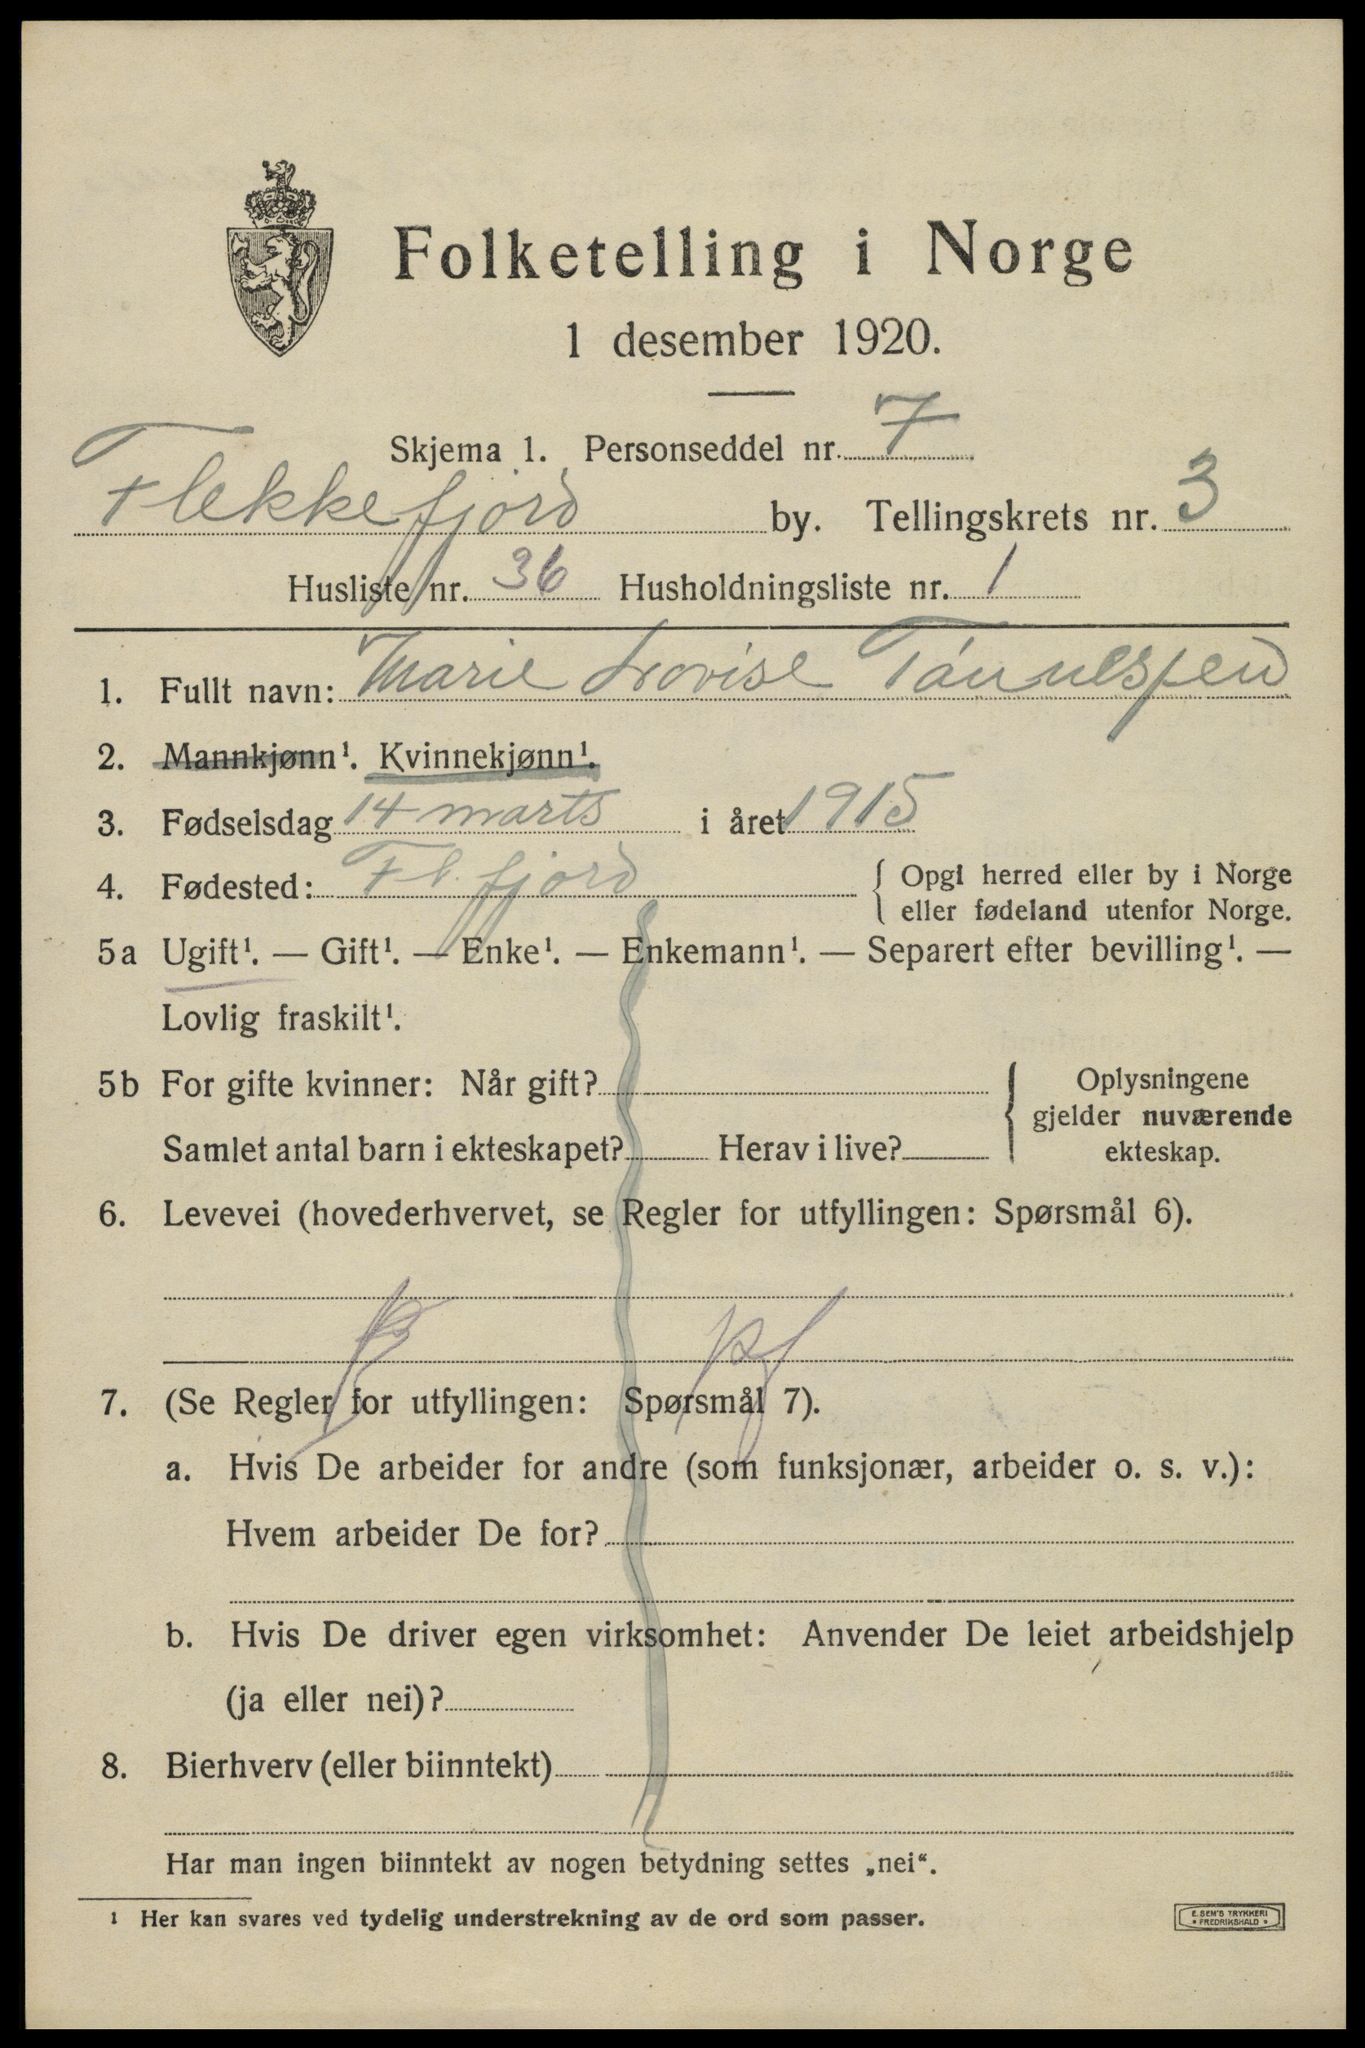 Folketelling i Norge
1 desember 1920.
Skjema 1. Personseddel nr. 7
Flekkefjord by. Tellingskrets nr. 3
Husliste nr. 36 Husholdningsliste nr. 1
1. Fullt navn: Marie Lovise Tønnessen
2. Mannkjønn¹. Kvinnekjønn¹.
3. Fødselsdag 14 marts i året 1915
4. Fødested: Fl.fjord { Opgi herred eller by i Norge
eller fødeland utenfor Norge.
5a Ugift¹. — Gift¹. — Enke¹. — Enkemann¹. — Separert efter bevilling¹. —
Lovlig fraskilt¹.
5b For gifte kvinner: Når gift? { Oplysningene
gjelder nuværende
Samlet antal barn i ekteskapet? Herav i live? ekteskap.
6. Levevei (hovederhvervet, se Regler for utfyllingen: Spørsmål 6).
7. (Se Regler for utfyllingen: Spørsmål 7).
a. Hvis De arbeider for andre (som funksjonær, arbeider o. s. v.):
Hvem arbeider De for?
b. Hvis De driver egen virksomhet: Anvender De leiet arbeidshjelp
(ja eller nei)?
8. Bierhverv (eller biinntekt)
Har man ingen biinntekt av nogen betydning settes „nei“.
¹ Her kan svares ved tydelig understrekning av de ord som passer.
E. SEM'S TRYKKERI
• FREDRIKSHALD •